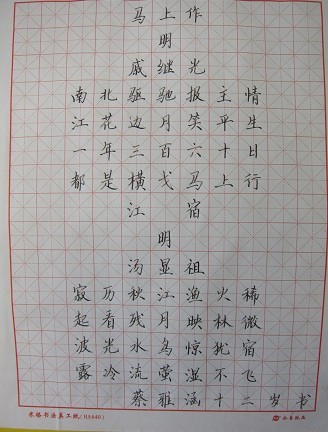 马上作
明
戚继光
南北驱驰报主情
江花边月笑平生
一年三百六十日
都是横戈马上行
江宿
明
汤显祖
寂历秋江渔火稀
起看残月映林微
波光水鸟惊犹宿
露冷流萤湿不飞
蔡雅涵十二岁书